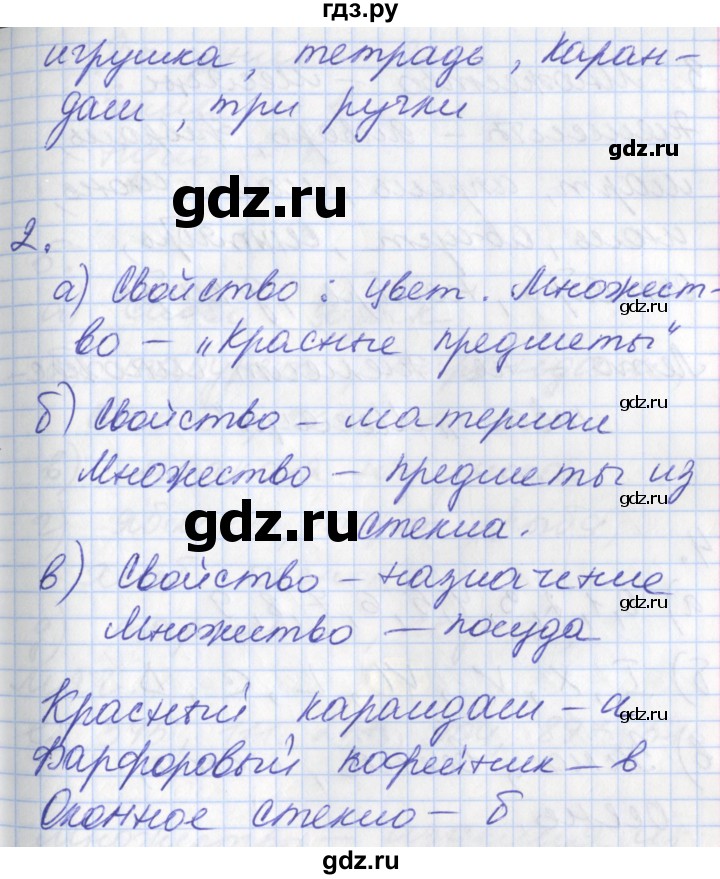 гдз.ру
игрушка, тетрадь, каран-
даш, три ручки
gdz.ru
gdz.ru
2.
а) Свойство: цвет. Множест-
gdz.ru
во – „Красные предметы“
б) Свойство – материал
gdz.ru
Множество – предметы из
gdz.ru
gdz.ru
стекла.
в) Свойство – назначение
gdz.ru
Множество – посуда
Красный карандаш – а
gdz.ru
Фарфоровый кофейник – в
Оконное стекло – б
gdz.ru
gdz.ru